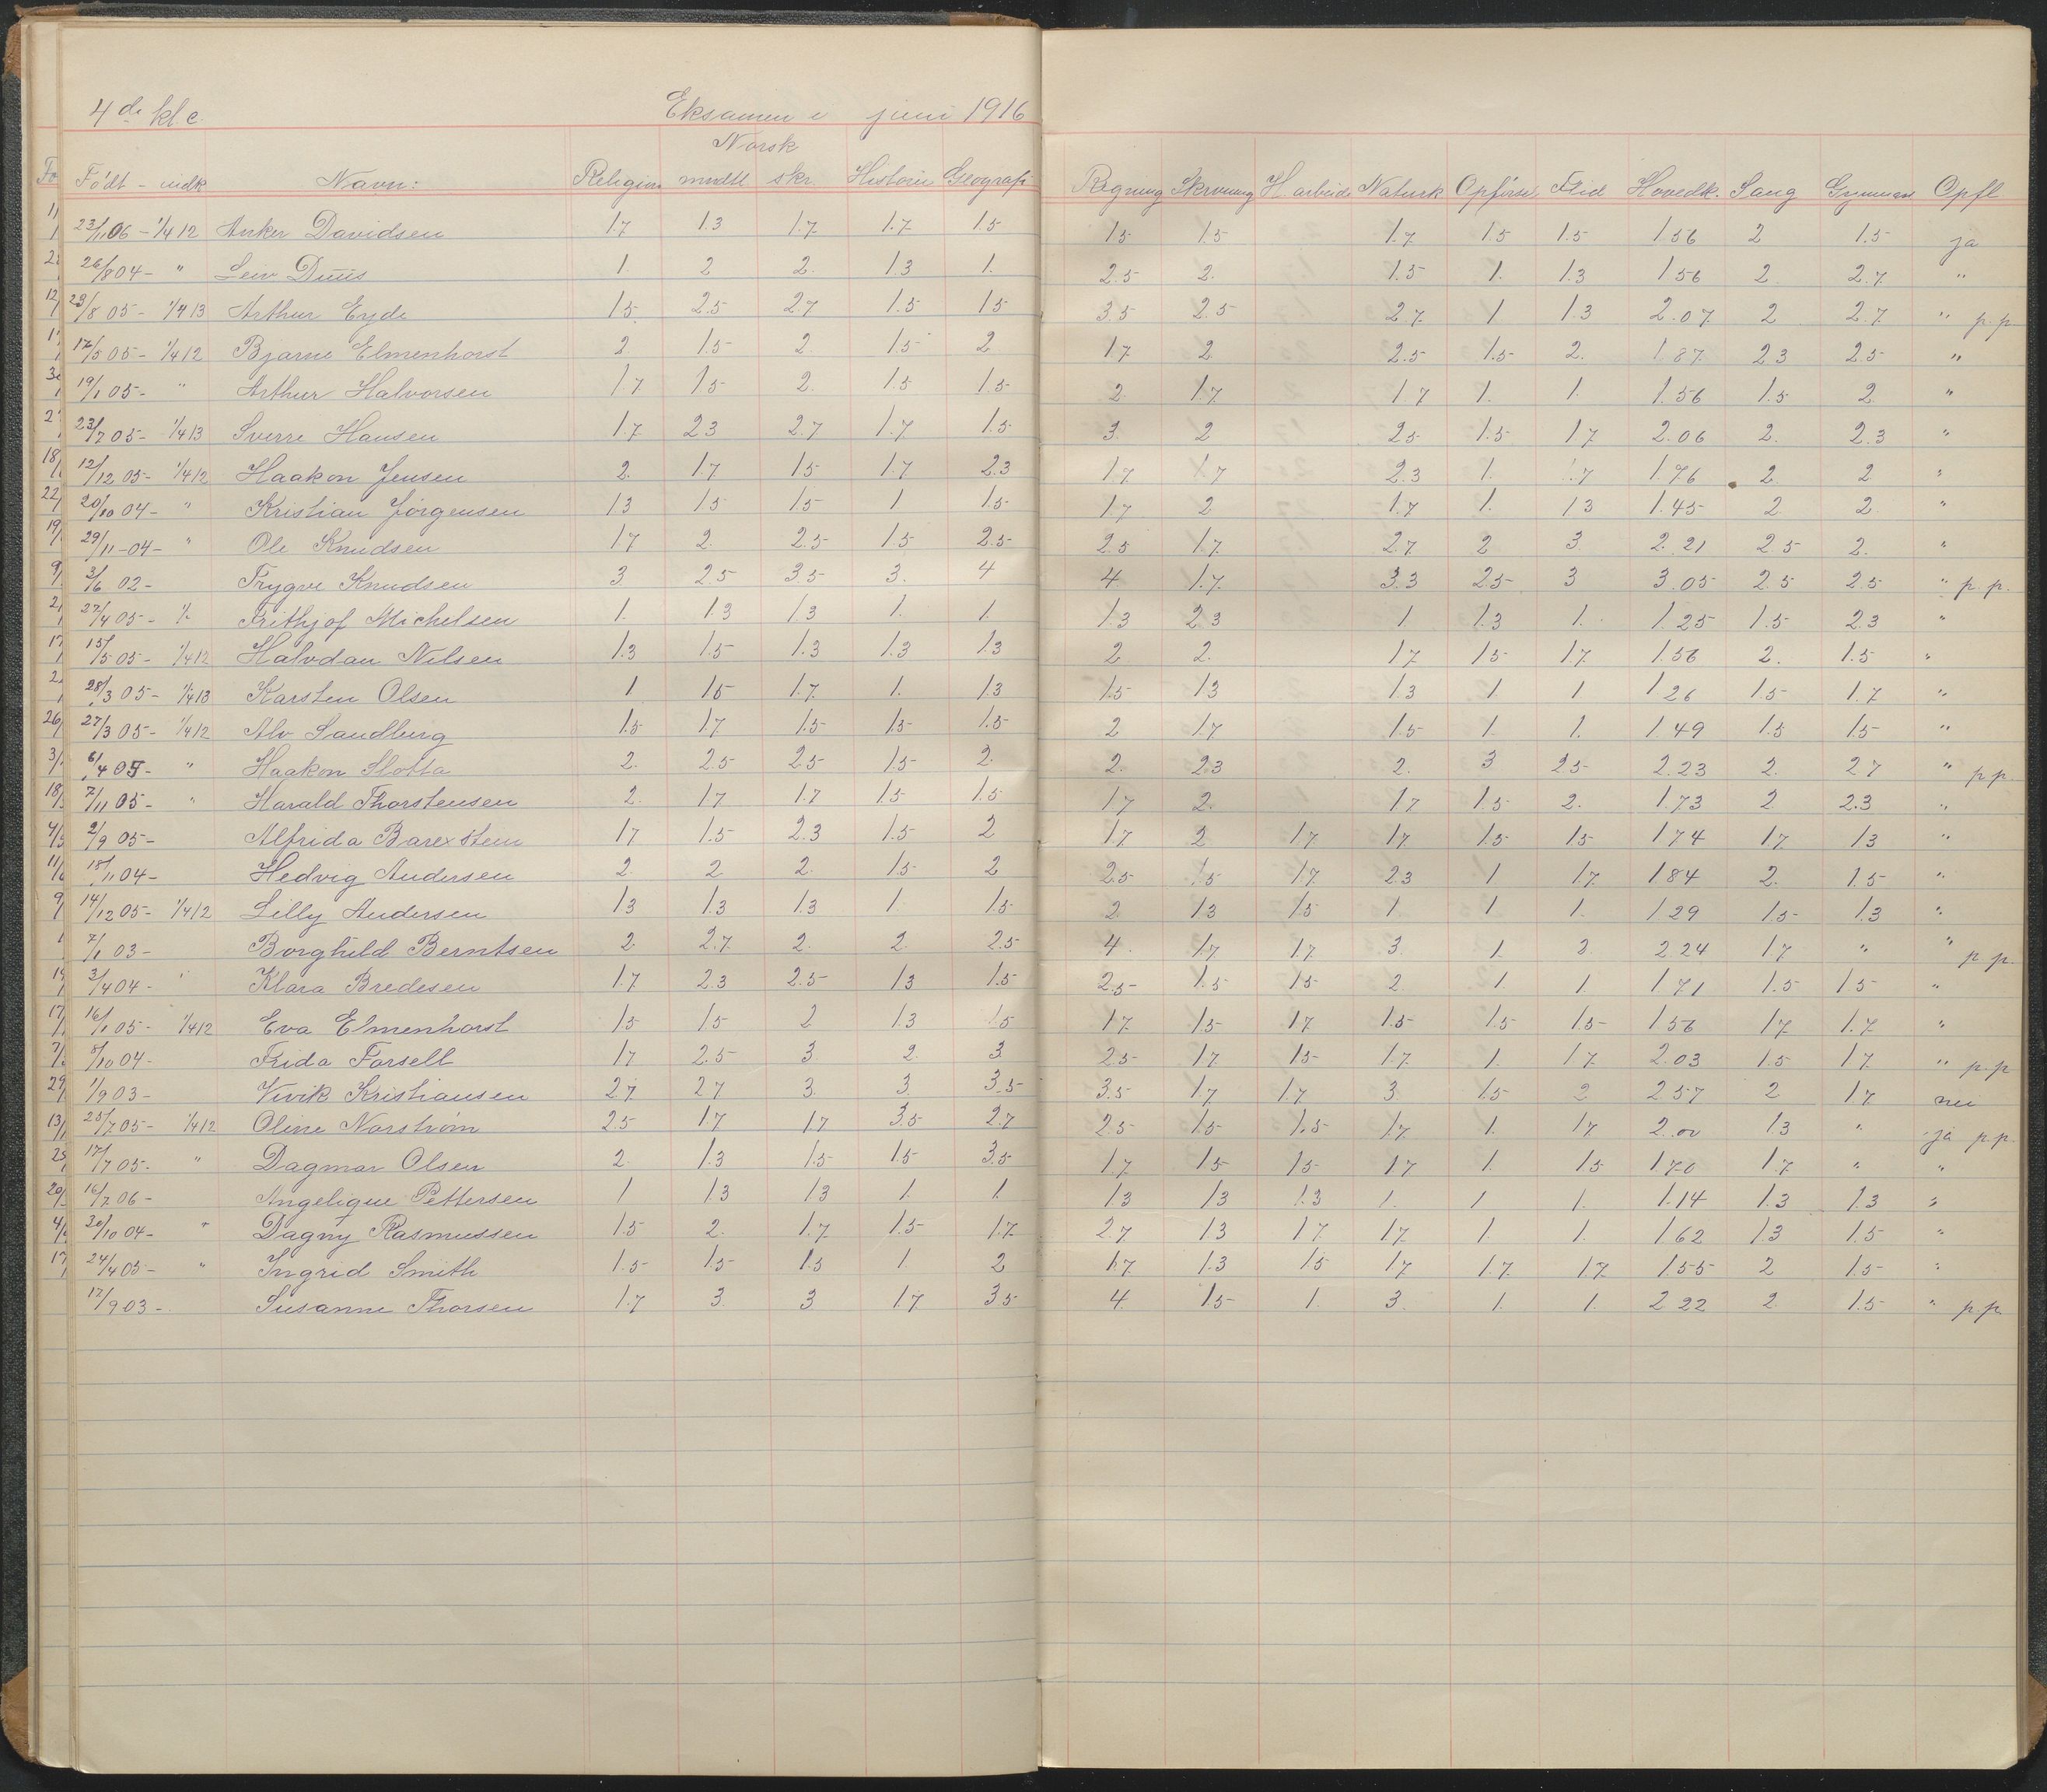 4 de kl c. Eksamen i juni 1916
Norsk
Født - indk Navn: Religion mndtl skr. Historie Geografi Regning Skrivning H arbeide Naturk Opførsel Flid Hovedk. Sang Gymnas Opfl
23/11 06 - 1/4 12 Anker Davidsen 1.7 1.3 1.7 1.7 1.5 1.5 1.5 1.7 1.5 1.5 1.56 2 1.5 ja
26/8 04 - " Leiv Duus 1 2 2 1.3 1. 2.5 2. 1.5 1. 1.3 1.56 2 2.7 "
23/8 05 - 1/4 13 Arthur Eyde 1.5 2.5 2.7 1.5 1.5 3.5 2.5 2.7 1 1.3 2.07 2 2.7 " p.p.
17/5 05 - 1/4 12 Bjarne Elmenhorst 2. 1.5 2. 1.5 2 1.7 2 2.5 1.5 2. 1.87 2.3 2.5 "
19/1 05 - " Arthur Halvorsen 1.7 1.5 2. 1.5 1.5 2 1.7 1.7 1. 1. 1.56 1.5 2. "
23/7 05 - 1/4 13 Sverre Hansen 1.7 2.3 2.7 1.7 1.5 3. 2 2.5 1.5 1.7 2.06 2. 2.3 "
12/12 05 - 1/4 12 Haakon Jensen 2. 1.7 1.5 1.7 2.3 1.7 1.7 2.3 1. 1.7 1.76 2. 2 "
20/10 04 - " Kristian Jørgensen 1.3 1.5 1.5 1 1.5 1.7 2 1.7 1. 1.3 1.45 2 2 "
29/11 - 04 - " Ole Knudsen 1.7 2. 2.5 1.5 2.5 2.5 1.7 2.7 2 3 2.21 2.5 2. "
3/6 02 - Trygve Knudsen 3 2.5 3.5 3. 4 4 1.7 3.3 2.5 3 3.05 2.5 2.5 " p.p.
27/4 05 - Frithjof Michelsen 1. 1.3 1.3 1. 1. 1.3 2.3 1 1.3 1. 1.25 1.5 2.3 "
15/5 05 - 1/4 12 Halvdan Nilsen 1.3 1.5 1.3 1.3 1.3 2 2. 1.7 1.5 1.7 1.56 2. 1.5 "
28/3 05 - 1/4 13 Karsten Olsen 1 1.5 1.7 1. 1.3 1.5 1.3 1.3 1 1 1.26 1.5 1.7 "
27/3 05 - 1/4 12 Alv Sandberg 1.5 1.7 1.5 1.5 1.5 2 1.7 1.5 1. 1. 1.49 1.5 1.5 "
6/4 05 - " Haakon Slotta 2. 2.5 2.5 1.5 2. 2. 2.3 2. 3 2.5 2.23 2. 2.7 " p.p.
7/11 05 - " Harald Thorstensen 2. 1.7 1.7 1.5 1.5 1.7 2. 1.7 1.5 2. 1.73 2 2.3 "
2/9 05 - Alfrida Barexstein 1.7 1.5 2.3 1.5 2 1.7 2 1.7 1.7 1.5 1.5 1.74 1.7 1.3 "
18/11 04 - Hedvig Andersen 2. 2 2. 1.5 2 2.5 1.5 1.7 2.3 1 1.7 1.84 2. 1.5 "
14/12 05 - 1/4 12 Lilly Andersen 1.3 1.3 1.3 1 1.5 2 1.3 1.5 1 1 1. 1.29 1.5 1.3 "
7/1 03 - Borghild Berntsen 2 2.7 2. 2. 2.5 4. 1.7 1.7 3. 1. 2. 2.24 1.7 " " p.p.
3/4 04 - " Klara Bredesen 1.7 2.3 2.5 1.3 1.5 2.5 1.5 1.5 2. 1. 1. 1.71 1.5 1.5 "
16/1 05 - 1/4 12 Eva Elmenhorst 1.5 1.5 2 1.3 1.5 1.7 1.5 1.7 1.5 1.5 1.5 1.56 1.7 1.7 "
5/10 04 - Frida Forsell 1.7 2.5 3. 2. 3. 2.5 1.7 1.5 1.7 1. 1.7 2.03 1.5 1.7 " p.p.
1/9 03 - Vivik Kristiansen 2.7 2.7 3. 3. 3.5 3.5 1.7 1.7 3. 1.5 2 2.57 2 1.7 nei
25/7 05 - 1/4 12 Oline Norstrøm 2.5 1.7 1.7 3.5 2.7 2.5 1.5 1.5 1.7 1. 1.7 2.00 1.3 " ja p.p.
17/7 05. " Dagmar Olsen 2. 1.3 1.5 1.5 3.5 1.7 1.5 1.5 1.7 1. 1.5 1.70 1.7 " "
16/7 06 - Angelique Pettersen 1 1.3 1.3 1. 1. 1.3 1.3 1.3 1. 1 1. 1.14 1.3 1.3 "
20/10 04 - " Dagny Rasmussen 1.5 2. 1.7 1.5 1.7 2.7 1.3 1.7 1.7 1 1. 1.62 1.3 1.5 "
24/4 05 - " Ingrid Smith 1.5 1.5 1.5 1. 2 1.7 1.3 1.5 1.7 1.7 1.7 1.55 2 1.5 "
12/9 03 - Susanne Thorsen 1.7 3. 3. 1.7 3.5 4. 1.5 1. 3. 1. 1. 2.22 2. 1.5 " p.p.